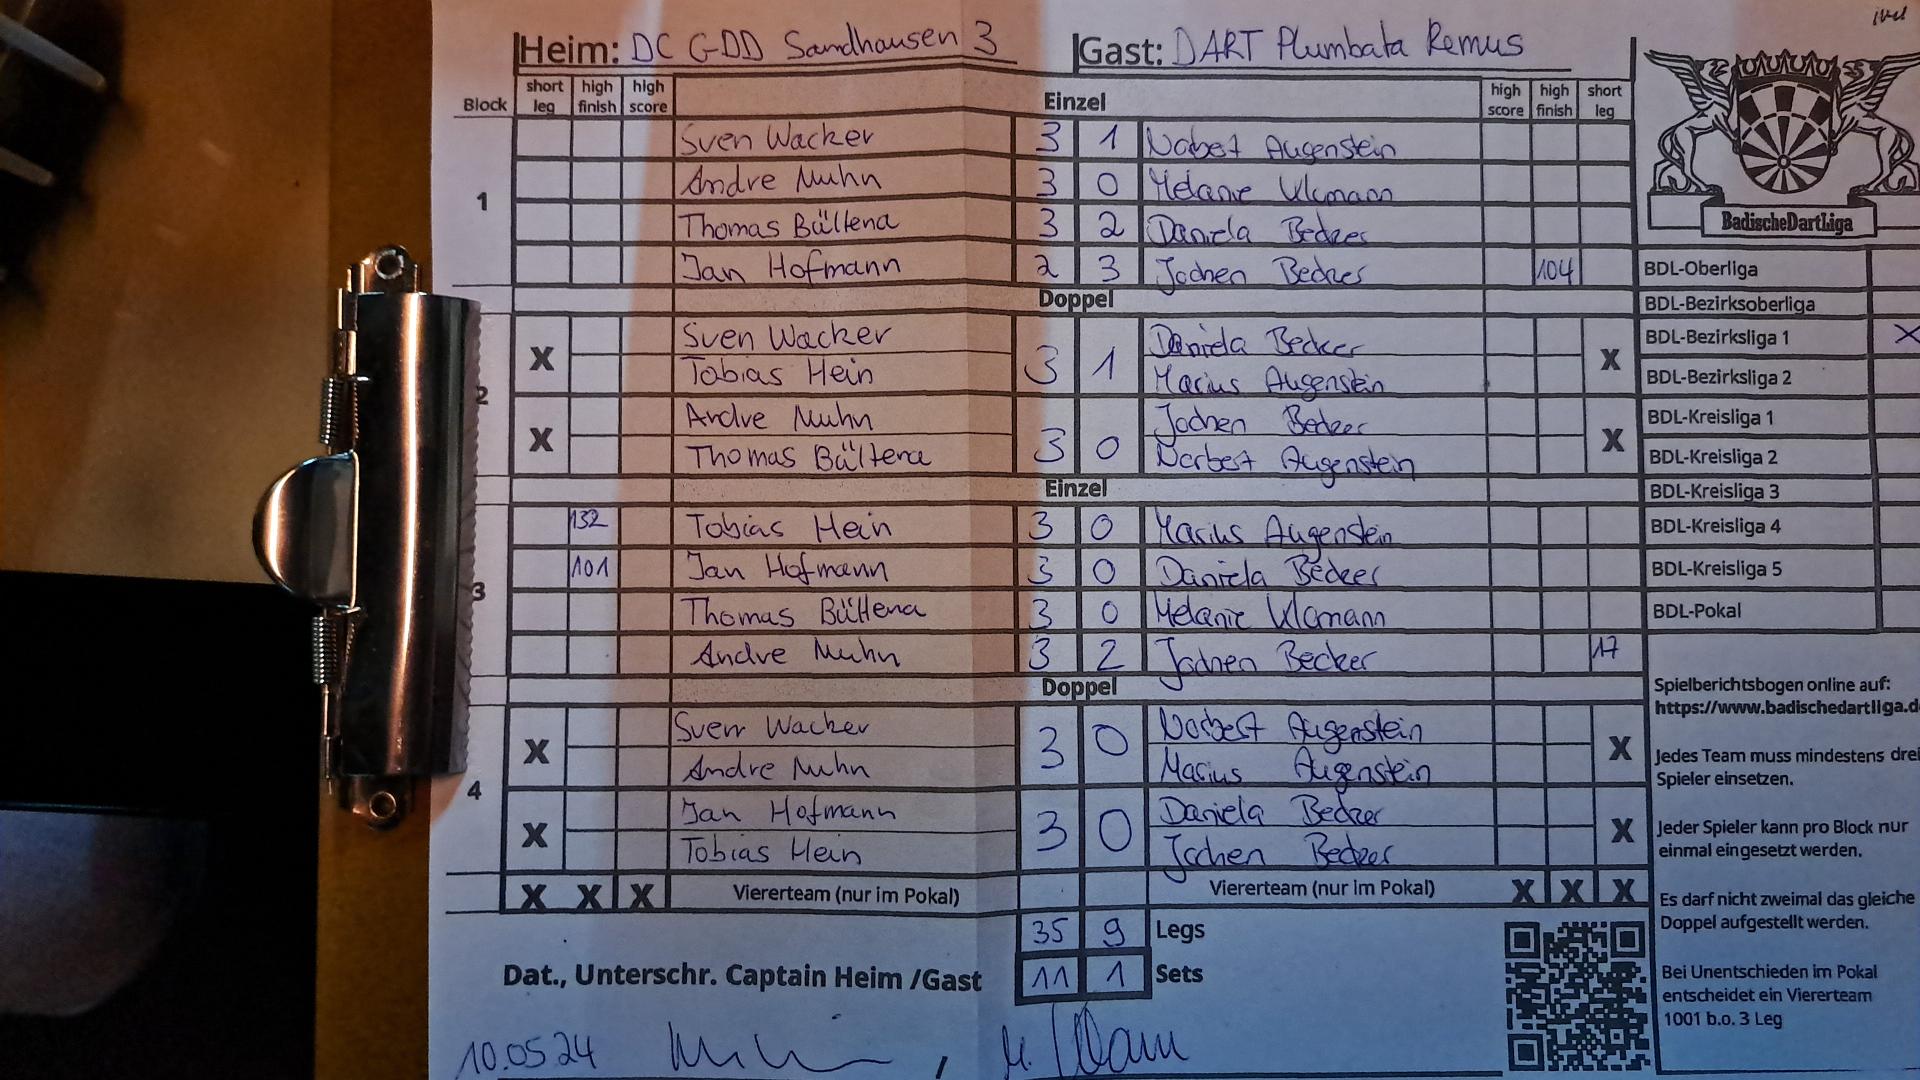 Heim: DC GDD Sandhausen 3 Gast: DART Plumbata Remus
Block short leg high finish high score Einzel high score high finish short leg
1
Sven Wacker 3 1 Norbert Augenstein
Andre Muhn 3 0 Melanie Ulamann
Thomas Bültena 3 2 Daniela Becker
Jan Hofmann 2 3 Jochen Becker 104
Doppel
2
X Sven Wacker 3 1 Daniela Becker X
Tobias Hein Marius Augenstein
X Andre Muhn 3 0 Jochen Becker X
Thomas Bültena Norbert Augenstein
Einzel
3
132 Tobias Hein 3 0 Marius Augenstein
101 Jan Hofmann 3 0 Daniela Becker
Thomas Bültena 3 0 Melanie Ulamann
Andre Muhn 3 2 Jochen Becker 17
Doppel
4
X Sven Wacker 3 0 Norbert Augenstein X
Andre Muhn Marius Augenstein
X Jan Hofmann 3 0 Daniela Becker X
Tobias Hein Jochen Becker
X X X Viererteam (nur im Pokal) Viererteam (nur im Pokal) X X X
35 9 Legs
Dat., Unterschr. Captain Heim /Gast 11 1 Sets
10.05.24
BadischeDartLiga
BDL-Oberliga
BDL-Bezirksoberliga
BDL-Bezirksliga 1 X
BDL-Bezirksliga 2
BDL-Kreisliga 1
BDL-Kreisliga 2
BDL-Kreisliga 3
BDL-Kreisliga 4
BDL-Kreisliga 5
BDL-Pokal
Spielberichtsbogen online auf:
https://www.badischedartliga.d
Jedes Team muss mindestens drei
Spieler einsetzen.
Jeder Spieler kann pro Block nur
einmal eingesetzt werden.
Es darf nicht zweimal das gleiche
Doppel aufgestellt werden.
Bei Unentschieden im Pokal
entscheidet ein Viererteam
1001 b.o. 3 Leg